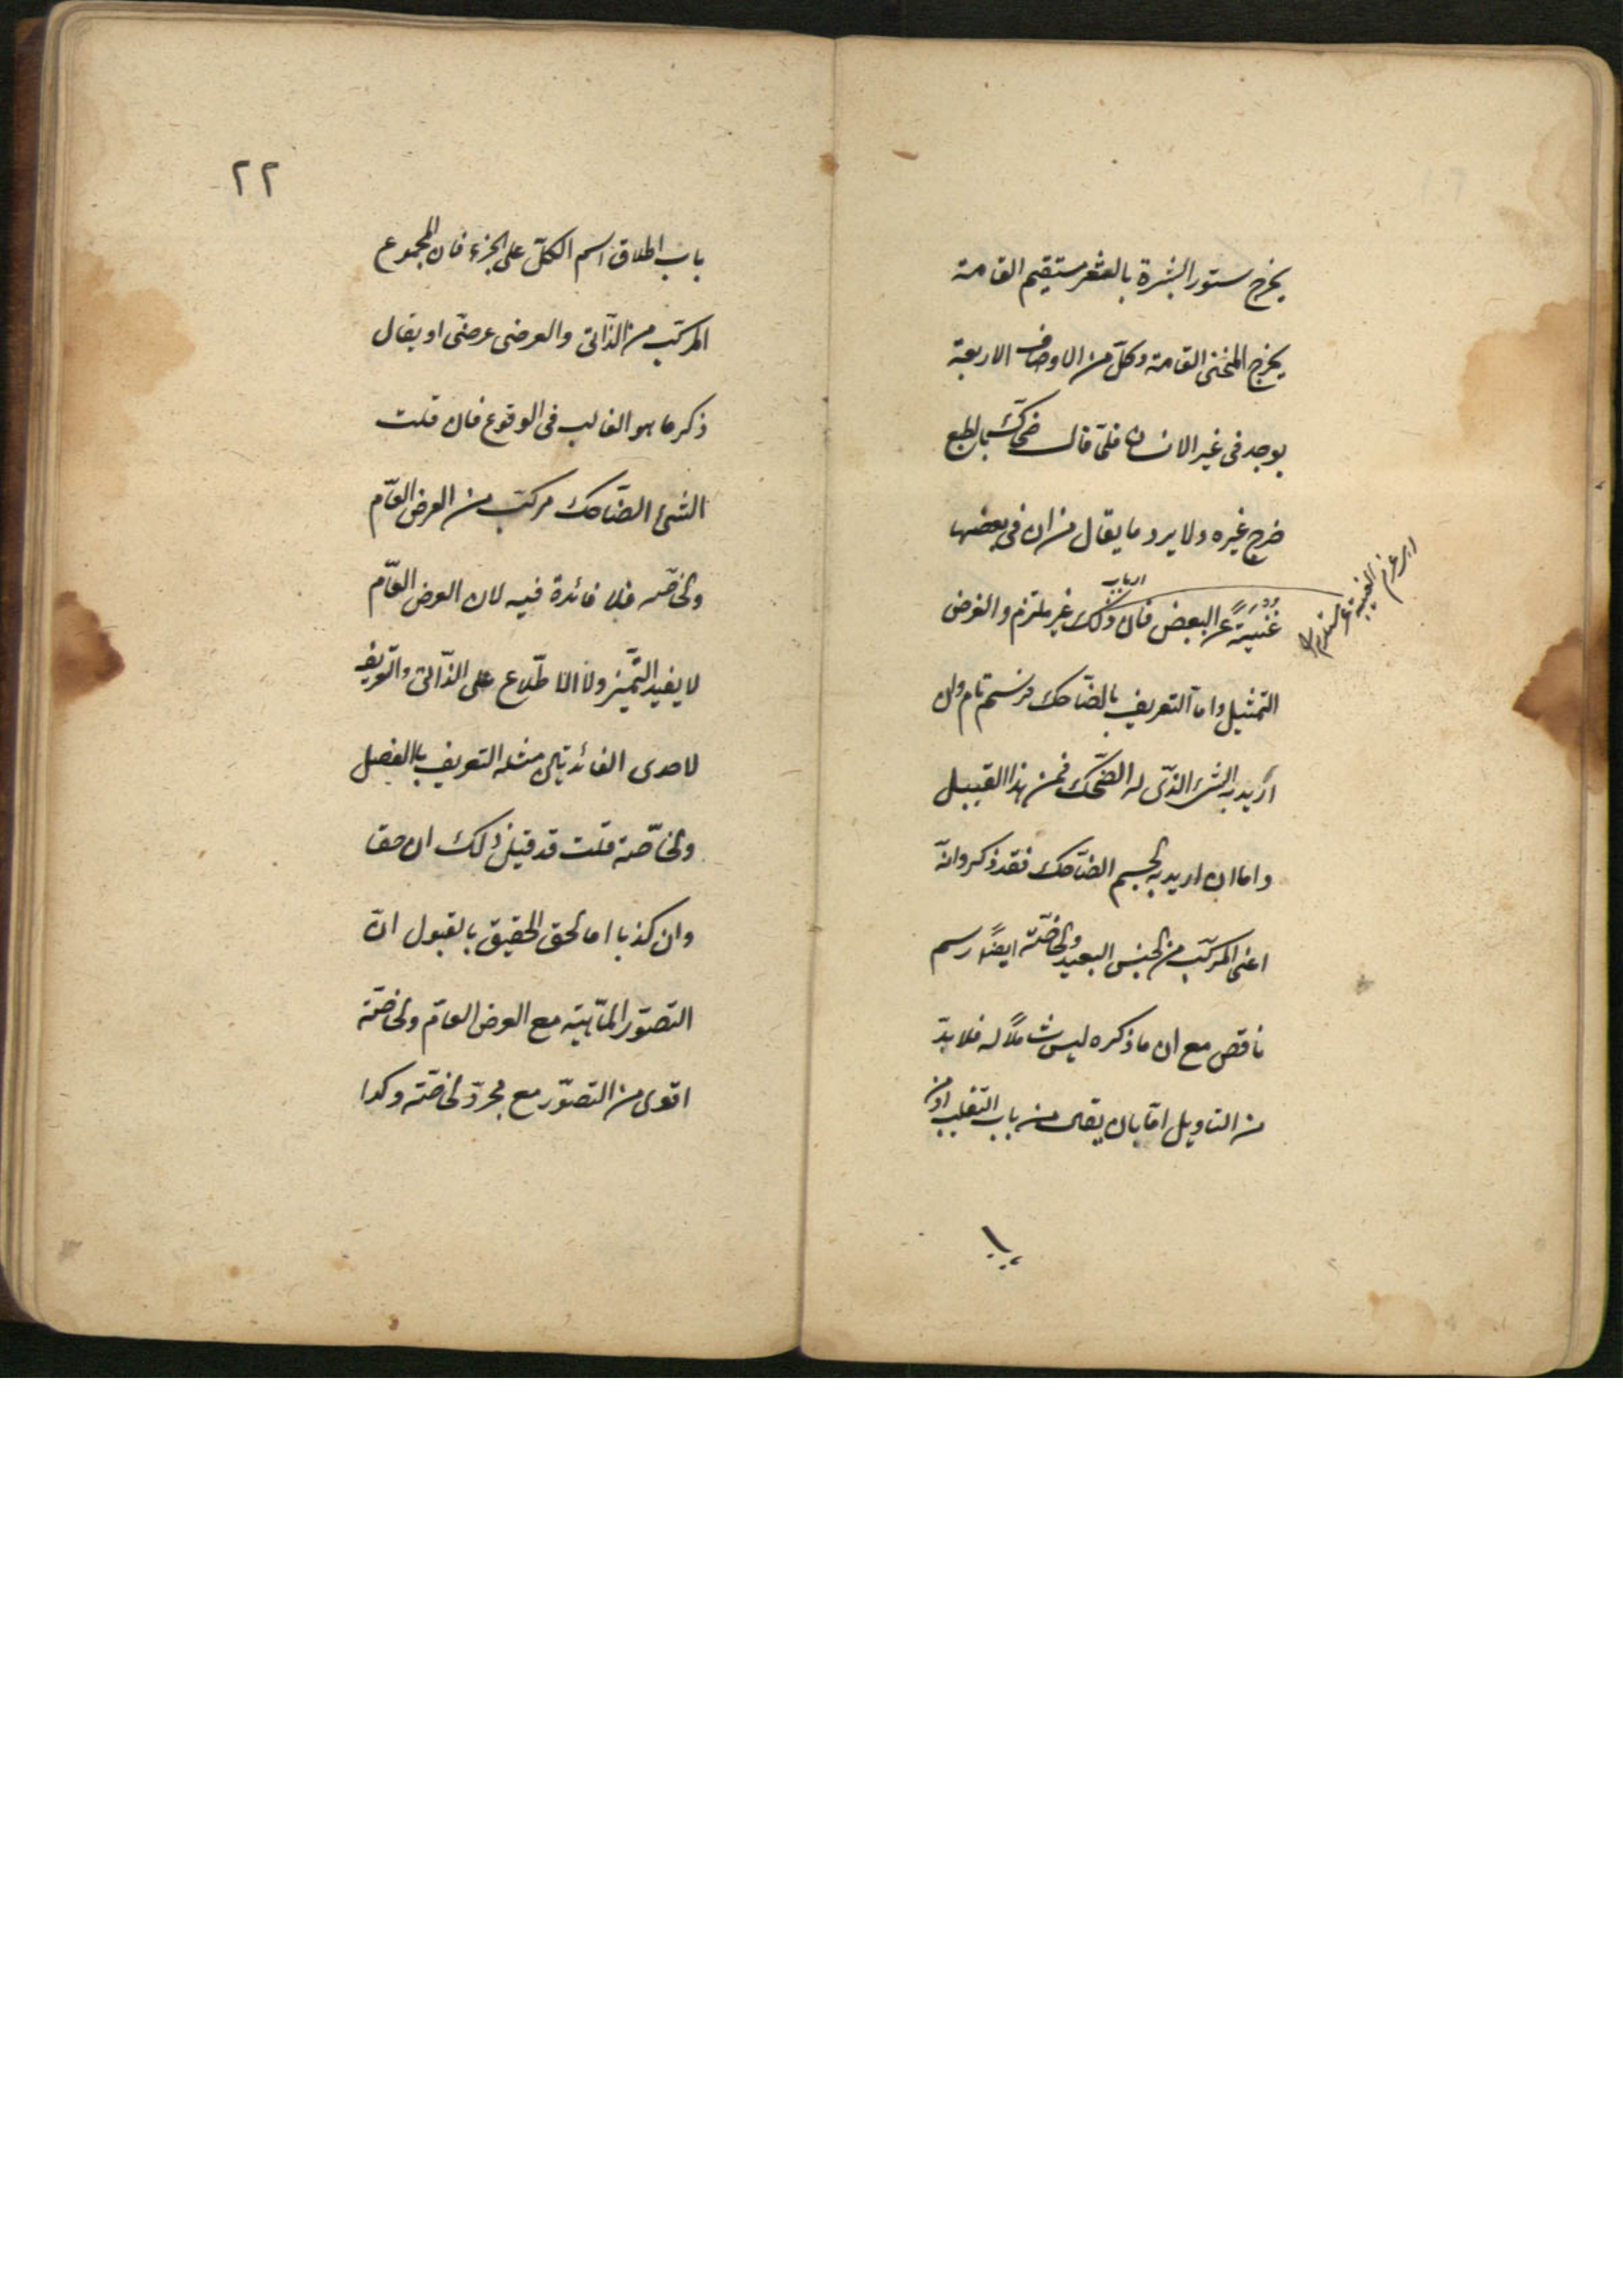 يخرج مستور البشرة بالشعر مستقيم القامة
يخرج المنحنى القامة وكلّ من الاوصاف الاربعة
يوجد فى غير الانسان فلمّا قال ضحّاك بالطبع
خرج غيره ولا يرد ما يقال من ان فى بعضها
غنيةً عن البعض فان ذلك غير ملتزم والغرض
التمثيل واما التعريف بالضّاحك فرسم تام وان
اريد به الشئ الذّى له الضّحك فمن هذا القبيل
واما ان اريد به الجسم الضّاحك فقد ذكروا انّه
اعنى المركّب من الجنس البعيد والخاصّة ايضًا رسم
ناقص مع ان ما ذكره ليس شاملًا له فلا بدّ
من التاويل امّا بان يقال من باب التغليب او من
٢٢
باب اطلاق اسم الكلّ على الجزء فان المجموع
المركّب من الذّاتى والعرضى عرضىّ او يقال
ذكر ما هو الغالب فى الوقوع فان قلت
الشئ الضّاحك مركّب من العرض العّام
والخاصّه فلا فائدة فيه لان العرض العّام
لا يفيد التّميّز ولا الاطّلاع على الذّاتى والتّعريف
لاحدى الفائدتين مثله التعريف بالفصل
والخاصّة قلت قد قيل ذلك ان حقا
وان كذبا اما الحق الحقيق بالقبول انّ
التصوّر الماّهيّة مع العرض العامّ والخاصّة
اقوى من التصوّر مع مجرّد الخاصّة وكذا